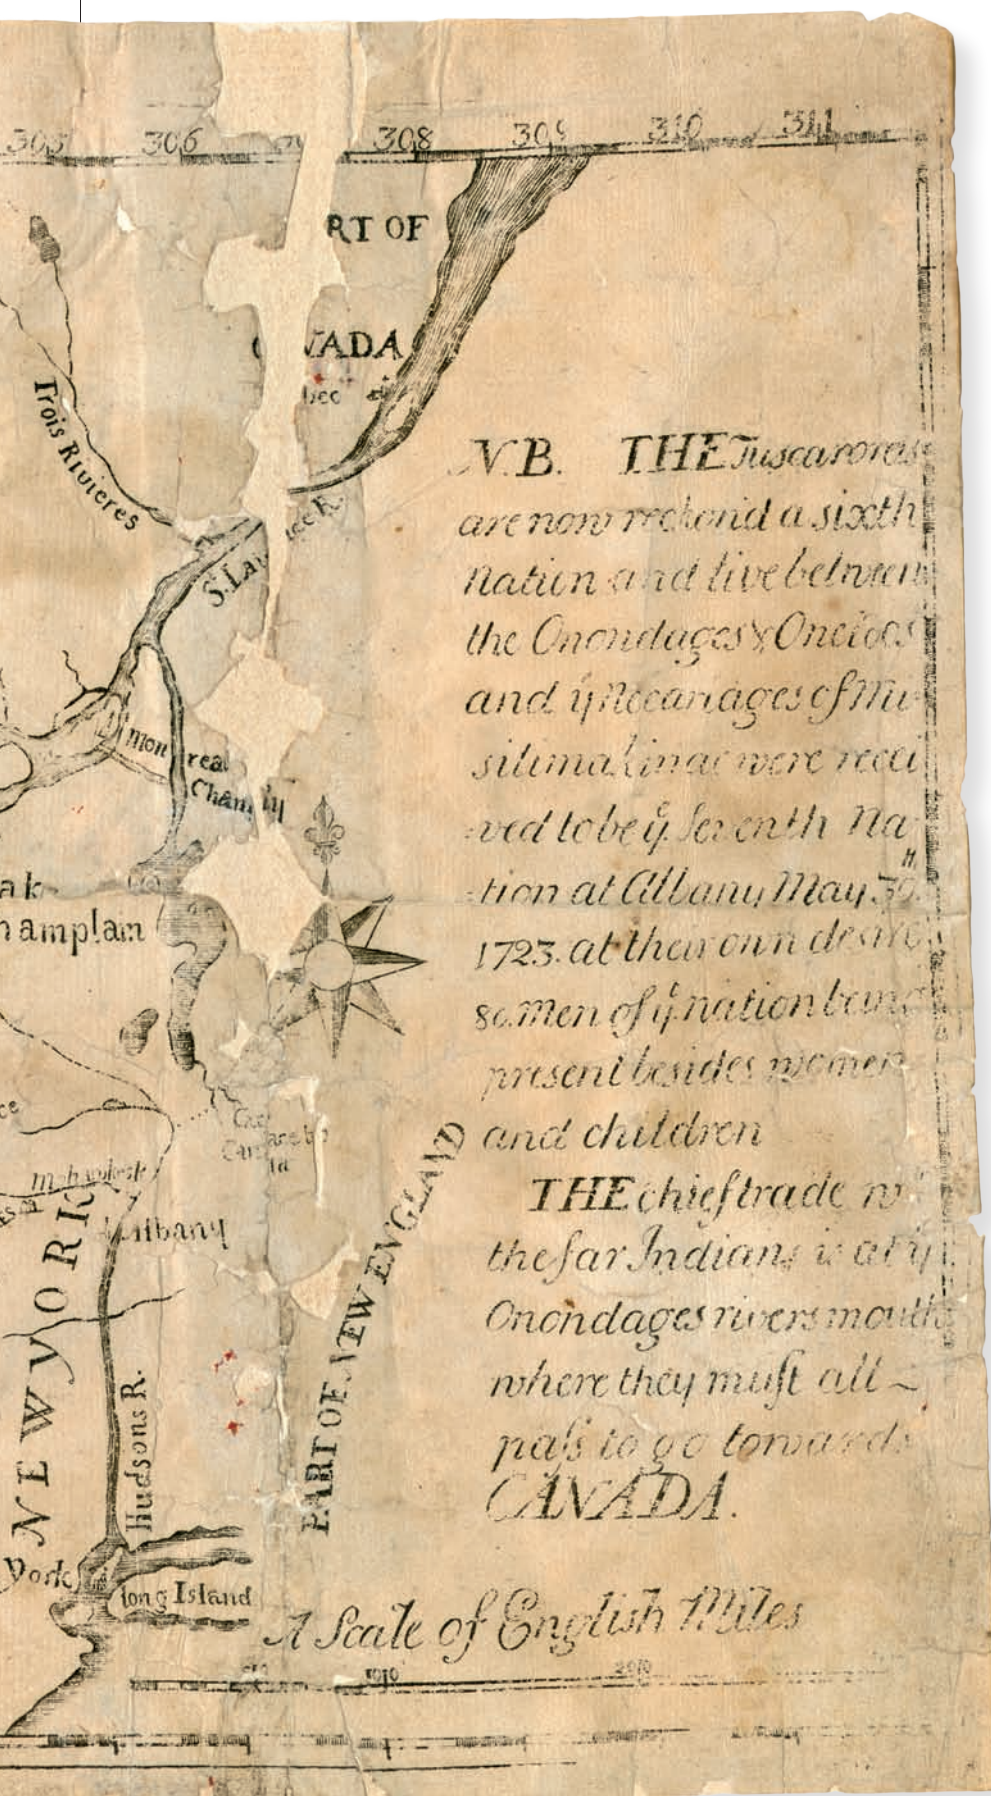 305 306 308 309 310 311
RT OF
NADA
bec
Trois Rivieres
S. Law
nce R.
Mon real
Cham ly
ak
hamplain
Mohawks R
Albany
NEW YORK
Hudsons R.
PART OF NEW ENGLAND
york
long Island
N.B. THE Tuscarores
are now reckond a sixth
nation and live between
the Onondages & Oneidos
and ẙ Necariages of Mi-
silimakinac were recei
:ved to be ẙ Seventh Na
:tion at Albany May 30.H
1723. at their own desire
80. Men of ẙ nation being
present besides women
and children
THE chief trade w
the far Indians is at ẙ
Onondages rivers mouth
where they muſt all ~
paſs to go towards
CANADA.
A Scale of English Miles